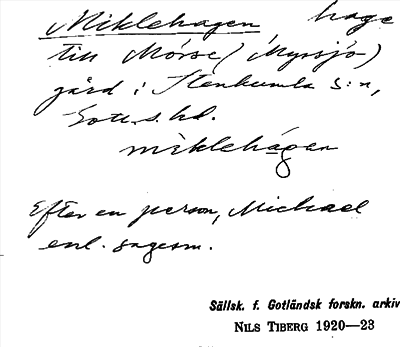 Miklehagen hage
till Mörse (Myrsjö)
gård i Stenkumla s:n,
Gotl. s. hd.
miklehågen
Efter en person, Michael
enl. sagesm.
Sällsk. f. Gotländsk forskn. arkiv
NILS TIBERG 1920—23